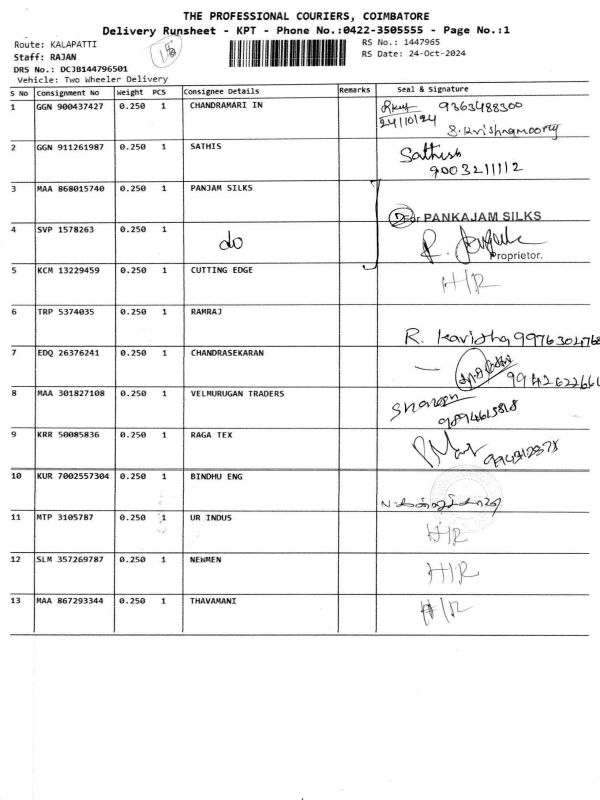 THE PROFESSIONAL COURIERS, COIMBATORE
Delivery Runsheet - KPT - Phone No.:0422-3505555 - Page No.:1
Route: KALAPATTI
RS No.: 1447965
Staff: RAJAN
RS Date: 24-Oct-2024
DRS No.: DCJB144796501
Vehicle: Two Wheeler Delivery
S No Consignment No Weight PCS Consignee Details Remarks Seal & Signature
1 GGN 900437427 0.250 1 CHANDRAMARI IN 9363488300
24/10/24
S. Krishnamoorthy
2 GGN 911261987 0.250 1 SATHIS Sathish
9003211112
3 MAA 868015740 0.250 1 PANJAM SILKS
For PANKAJAM SILKS
4 SVP 1578263 0.250 1 do
Proprietor.
5 KCM 13229459 0.250 1 CUTTING EDGE H/R
6 TRP 5374035 0.250 1 RAMRAJ
R. Kavidha
7 EDQ 26376241 0.250 1 CHANDRASEKARAN
8 MAA 301827108 0.250 1 VELMURUGAN TRADERS
9 KRR 50085836 0.250 1 RAGA TEX
10 KUR 7002557304 0.250 1 BINDHU ENG
11 MTP 3105787 0.250 1 UR INDUS H/R
12 SLM 357269787 0.250 1 NEWMEN H/R
13 MAA 867293344 0.250 1 THAVAMANI H/R